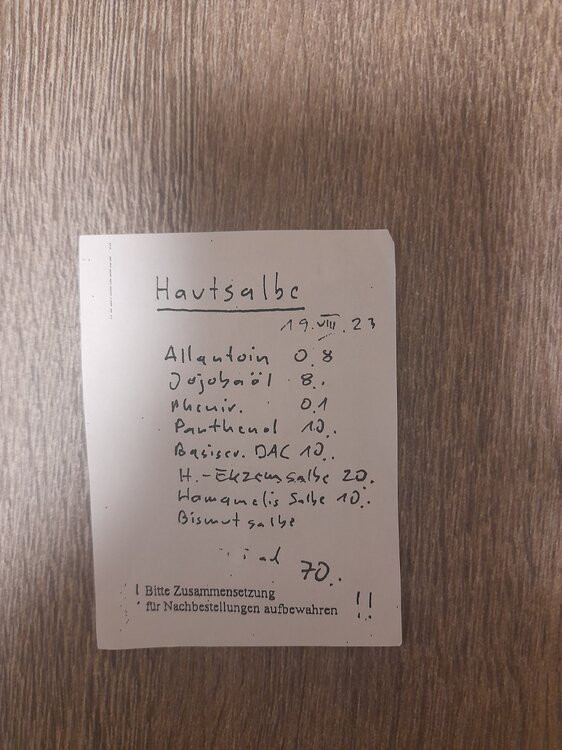 Hautsalbe
19.VIII.23
Allantoin 0.8
Jojobaöl 8.
0.1
Panthenol 10.
Basiscr. DAC 10.
H.-Ekzemsalbe 20.
Hamamelis Salbe 10.
Bismutsalbe
ad
70.
! Bitte Zusammensetzung
für Nachbestellungen aufbewahren !!